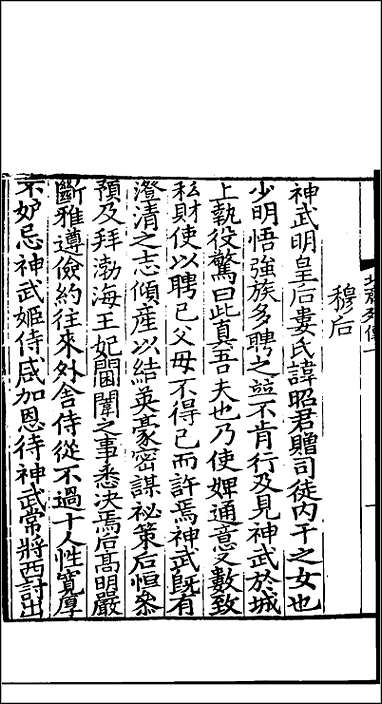 北齊列傳一
穆后
神武明皇后婁氏諱昭君贈司徒內干之女也
少明悟強族多聘之並不肯行及見神武於城
上執役驚曰此真吾夫也乃使婢通意又數致
私財使以聘己父母不得已而許焉神武旣有
澄清之志傾產以結英豪密謀祕策后恒叅
預及拜渤海王妃閫闈之事悉決焉后髙明嚴
斷雅遵儉約往來外舍侍從不過十人性寬厚
不妒忌神武姬侍咸加恩待神武常將西討出